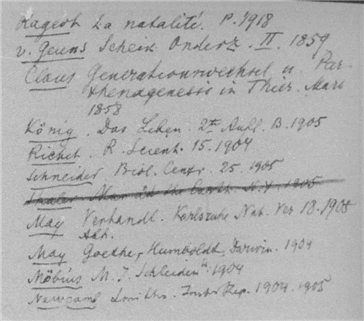 Kagert La natalité. P. 1918
v. Geuns Scheik Onderz. II. 1859
Claus Generationswechsel u. Par-
thenogenesis in Thier. Marb
1858
König. Das Leben. 2te Aufl. B. 1905
Richet. R. Scient. 15. 1904
Schneider Biol. Centr. 25. 1905
N.Y. 1905
May Verhandl. Karlsruhe Nat. Ver 18. 1905
Abh.
May Goethe, Humboldt, Darwin. 1904
Möbius M. J. Schleiden. 1904
Newcomb Smiths. Inst. Rep. 1904. 1905